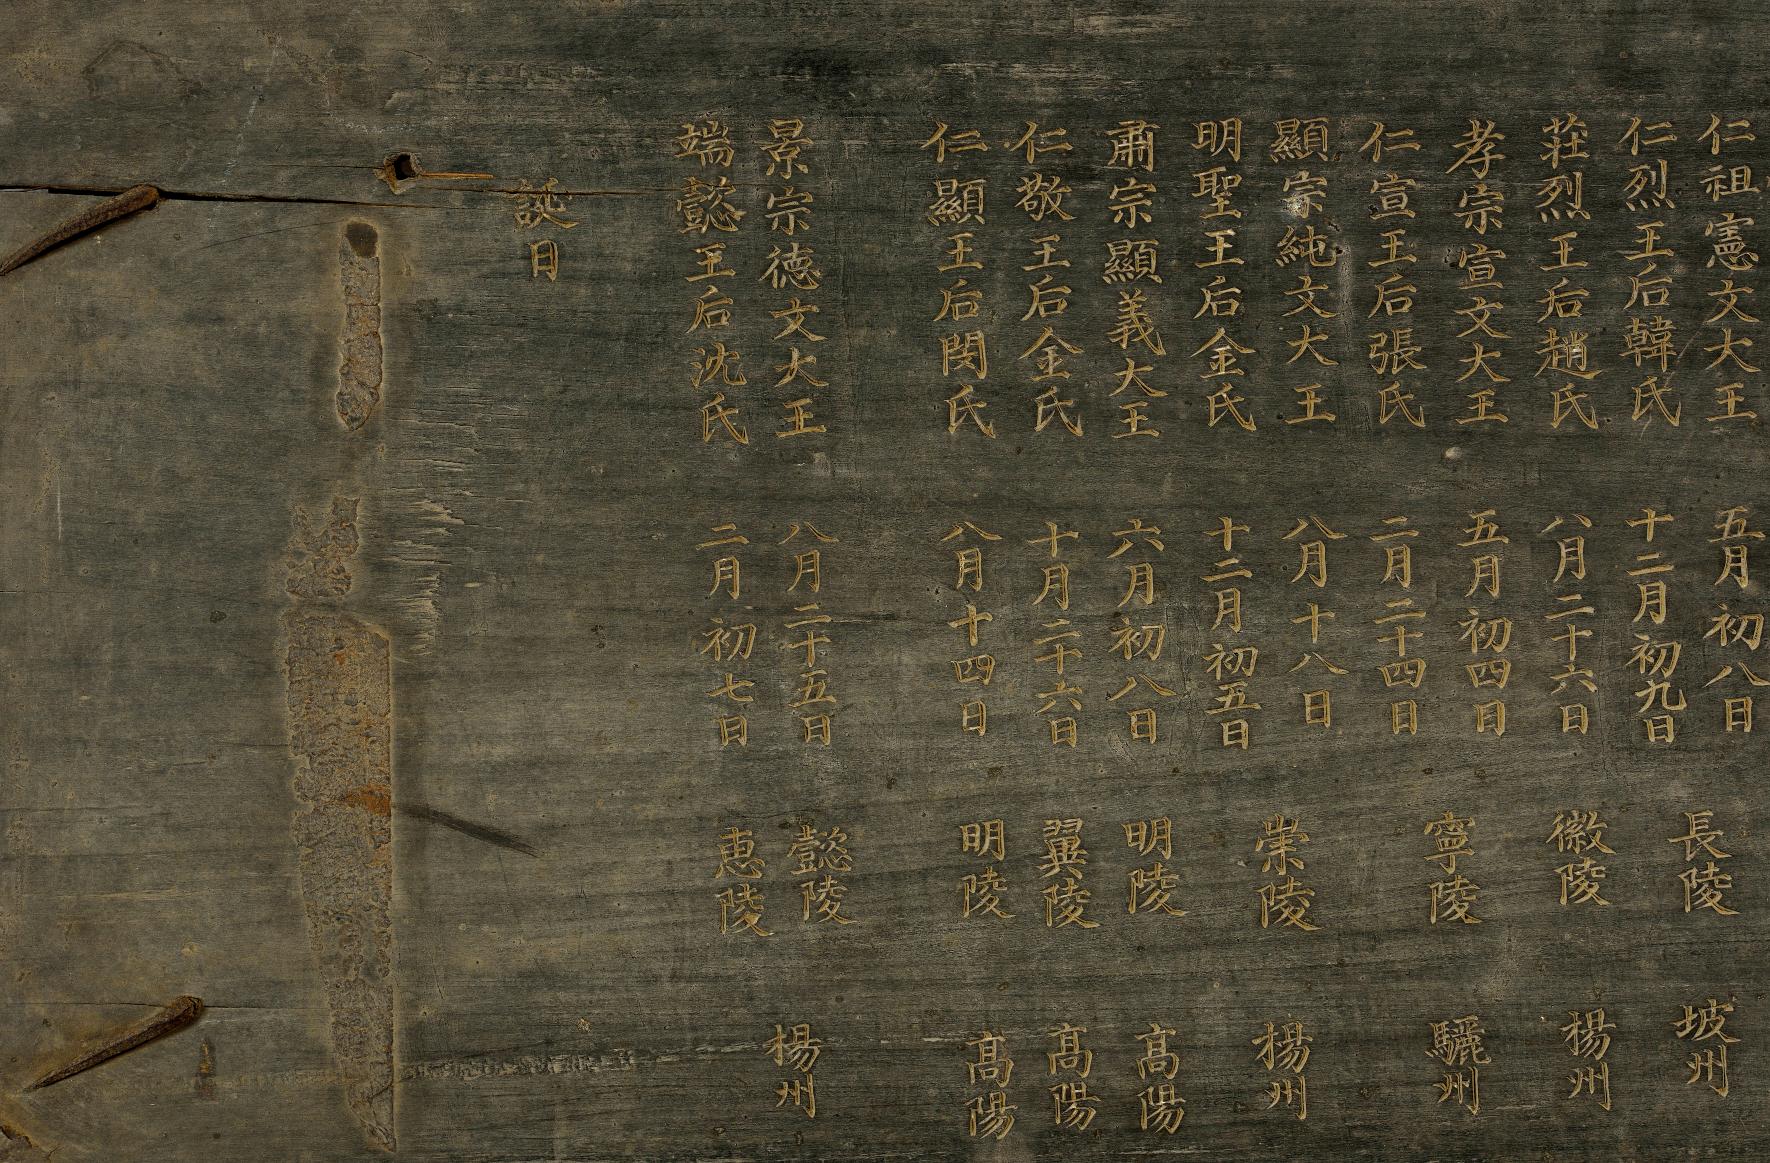 仁祖憲文大王 五月初八日 長陵 坡州
仁烈王后韓氏 十二月初九日
莊烈王后趙氏 八月二十六日 徽陵 楊州
孝宗宣文大王 五月初四日 寧陵 驪州
仁宣王后張氏 二月二十四日
顯宗純文大王 八月十八日 崇陵 楊州
明聖王后金氏 十二月初五日
肅宗顯義大王 六月初八日 明陵 高陽
仁敬王后金氏 十月二十六日 翼陵 高陽
仁顯王后閔氏 八月十四日 明陵 高陽
景宗德文大王 八月二十五日 懿陵 楊州
端懿王后沈氏 二月初七日 惠陵
誕日